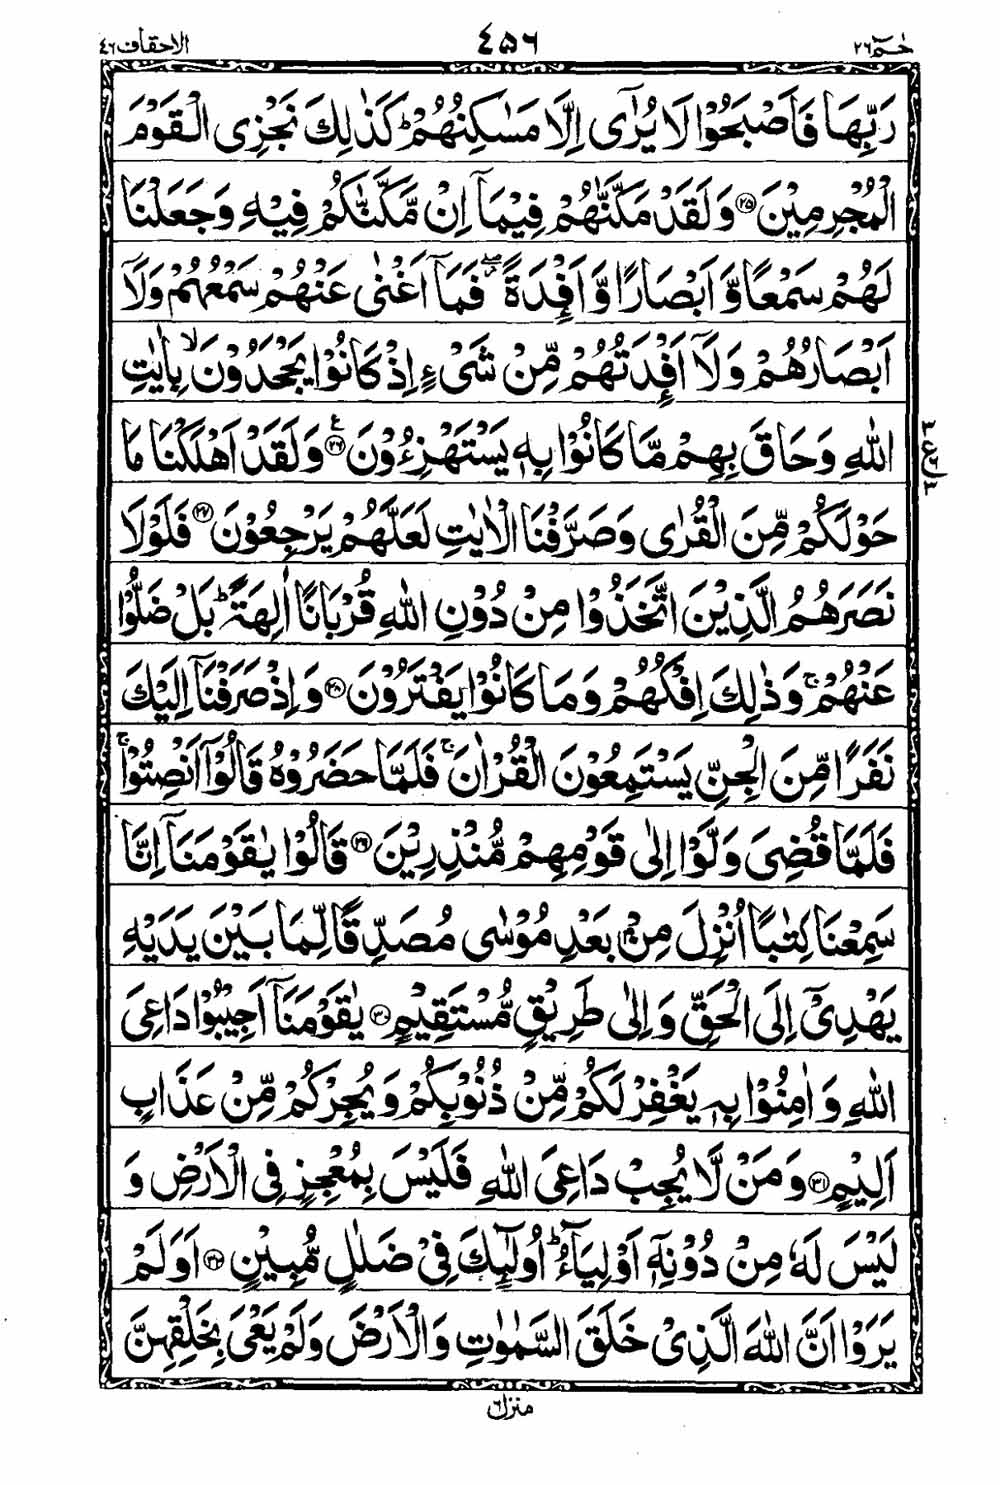 حٰمٓ ٢٦
٤٥٦
الاحقاف ٤٦
رَبِّهَا فَاَصْبَحُوْا لَا يُرٰٓى اِلَّا مَسٰكِنُهُمْ ؕ كَذٰلِكَ نَجْزِى الْقَوْمَ
الْمُجْرِمِيْنَ ۝٢٥ وَلَقَدْ مَكَّنّٰهُمْ فِيْمَاۤ اِنْ مَّكَّنّٰكُمْ فِيْهِ وَجَعَلْنَا
لَهُمْ سَمْعًا وَّاَبْصَارًا وَّاَفْـِٕدَةً ۖ فَمَاۤ اَغْنٰى عَنْهُمْ سَمْعُهُمْ وَلَاۤ
اَبْصَارُهُمْ وَلَاۤ اَفْـِٕدَتُهُمْ مِّنْ شَىْءٍ اِذْ كَانُوْا يَجْحَدُوْنَ ۙ بِاٰيٰتِ
اللّٰهِ وَحَاقَ بِهِمْ مَّا كَانُوْا بِهٖ يَسْتَهْزِءُوْنَ ۝٢٦ وَلَقَدْ اَهْلَكْنَا مَا
حَوْلَكُمْ مِّنَ الْقُرٰى وَصَرَّفْنَا الْاٰيٰتِ لَعَلَّهُمْ يَرْجِعُوْنَ ۝٢٧ فَلَوْلَا
نَصَرَهُمُ الَّذِيْنَ اتَّخَذُوْا مِنْ دُوْنِ اللّٰهِ قُرْبَانًا اٰلِهَةً ؕ بَلْ ضَلُّوْا
عَنْهُمْ ۚ وَذٰلِكَ اِفْكُهُمْ وَمَا كَانُوْا يَفْتَرُوْنَ ۝٢٨ وَاِذْ صَرَفْنَاۤ اِلَيْكَ
نَفَرًا مِّنَ الْجِنِّ يَسْتَمِعُوْنَ الْقُرْاٰنَ ۚ فَلَمَّا حَضَرُوْهُ قَالُوْۤا اَنْصِتُوْا ۚ
فَلَمَّا قُضِىَ وَلَّوْا اِلٰى قَوْمِهِمْ مُّنْذِرِيْنَ ۝٢٩ قَالُوْا يٰقَوْمَنَاۤ اِنَّا
سَمِعْنَا كِتٰبًا اُنْزِلَ مِنْۢ بَعْدِ مُوْسٰى مُصَدِّقًا لِّمَا بَيْنَ يَدَيْهِ
يَهْدِىْۤ اِلَى الْحَقِّ وَاِلٰى طَرِيْقٍ مُّسْتَقِيْمٍ ۝٣٠ يٰقَوْمَنَاۤ اَجِيْبُوْا دَاعِىَ
اللّٰهِ وَاٰمِنُوْا بِهٖ يَغْفِرْ لَكُمْ مِّنْ ذُنُوْبِكُمْ وَيُجِرْكُمْ مِّنْ عَذَابٍ
اَلِيْمٍ ۝٣١ وَمَنْ لَّا يُجِبْ دَاعِىَ اللّٰهِ فَلَيْسَ بِمُعْجِزٍ فِى الْاَرْضِ وَ
لَيْسَ لَهٗ مِنْ دُوْنِهٖۤ اَوْلِيَآءُ ؕ اُولٰٓئِكَ فِىْ ضَلٰلٍ مُّبِيْنٍ ۝٣٢ اَوَلَمْ
يَرَوْا اَنَّ اللّٰهَ الَّذِىْ خَلَقَ السَّمٰوٰتِ وَالْاَرْضَ وَلَمْ يَعْىَ بِخَلْقِهِنَّ
منزل ٦